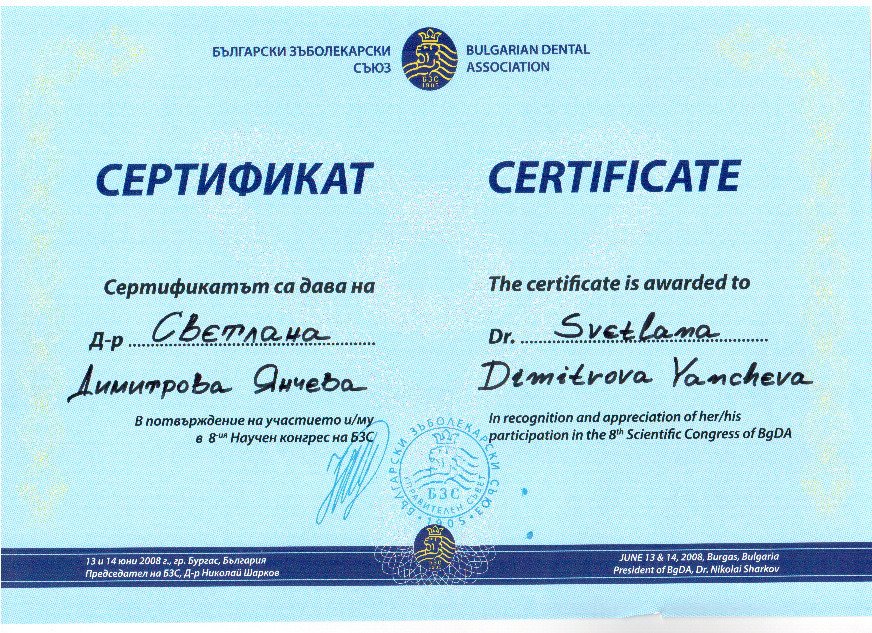 БЪЛГАРСКИ ЗЪБОЛЕКАРСКИ
СЪЮЗ
БЗС
1905
BULGARIAN DENTAL
ASSOCIATION
СЕРТИФИКАТ
Сертификатът са дава на
Д-р Светлана
Димитрова Янчева
В потвърждение на участието и/му
в 8-ия Научен конгрес на БЗС
CERTIFICATE
The certificate is awarded to
Dr. Svetlana
Dimitrova Yancheva
In recognition and appreciation of her/his
participation in the 8th Scientific Congress of BgDA
БЪЛГАРСКИ ЗЪБОЛЕКАРСКИ СЪЮЗ
УПРАВИТЕЛЕН СЪВЕТ
БЗС
1905
13 и 14 юни 2008 г., гр. Бургас, България
Председател на БЗС, Д-р Николай Шарков
JUNE 13 & 14, 2008, Burgas, Bulgaria
President of BgDA, Dr. Nikolai Sharkov